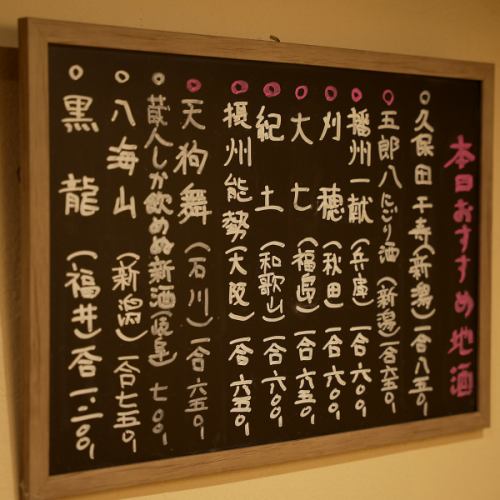 本日おすすめ地酒
○久保田千寿(新潟)一合八五〇、
○五郎八にごり酒(新潟)一合六五〇、
○播州一献(兵庫)一合六〇〇、
○刈穂(秋田)一合六〇〇、
○大七(福島)一合六五〇、
○紀土(和歌山)一合六〇〇、
○摂州能勢(大阪)一合六五〇、
○天狗舞(石川)一合六五〇、
○蔵人しか飲めぬ新酒(岐阜)七〇〇、
○八海山(新潟)一合七五〇、
○黒龍(福井)一合一、二〇〇、